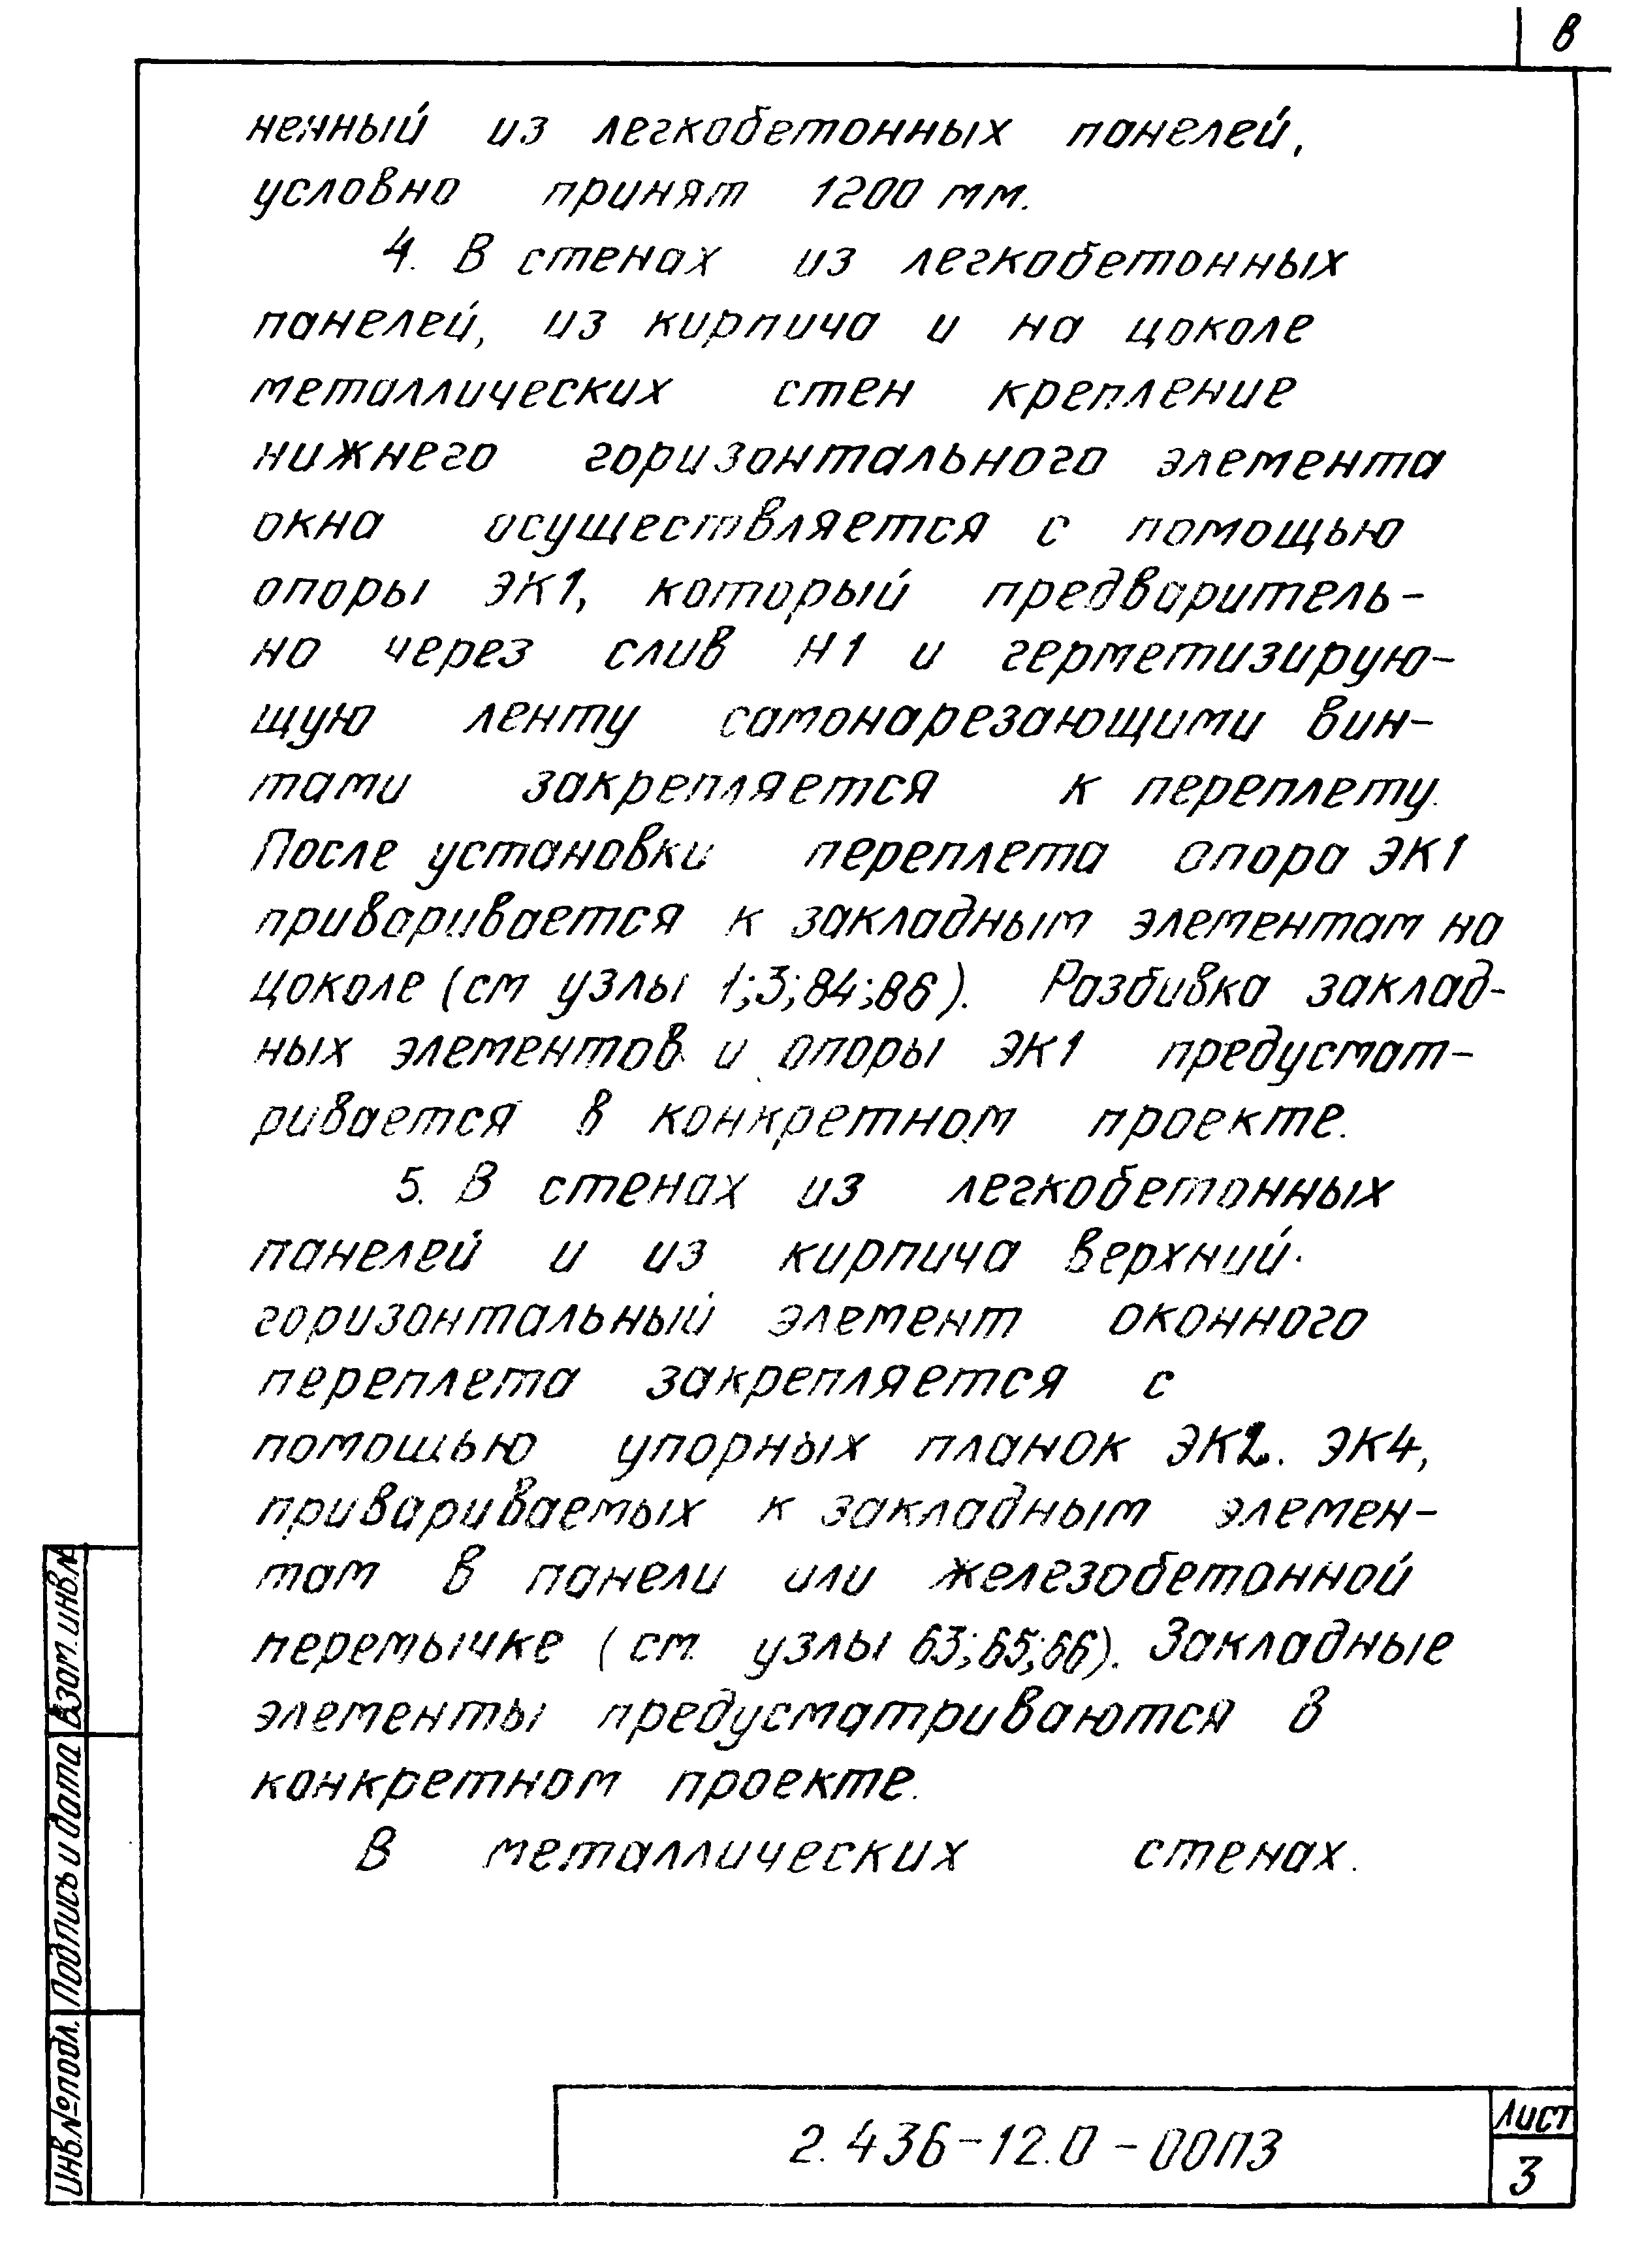 8
ненный из легкобетонных панелей,
условно принят 1200 мм.
4. В стенах из легкобетонных
панелей, из кирпича и на цоколе
металлических стен крепление
нижнего горизонтального элемента
окна осуществляется с помощью
опоры ЭК1, который предваритель-
но через слив Н1 и герметизирую-
щую ленту самонарезающими вин-
тами закрепляется к переплету.
После установки переплета опора ЭК1
приваривается к закладным элементам на
цоколе (см узлы 1;3;84;86). Разбивка заклад-
ных элементов и опоры ЭК1 предусмат-
ривается в конкретном проекте.
5. В стенах из легкобетонных
панелей и из кирпича верхний
горизонтальный элемент оконного
переплета закрепляется с
помощью упорных планок ЭК2. ЭК4,
привариваемых к закладным элемен-
там в панели или железобетонной
перемычке (см. узлы 63;65;66). Закладные
элементы предусматриваются в
конкретном проекте.
В металлических стенах.
Взам.инв.№
Подпись и дата
Инв.№подл.
2.436-12.0-00ПЗ
Лист
3